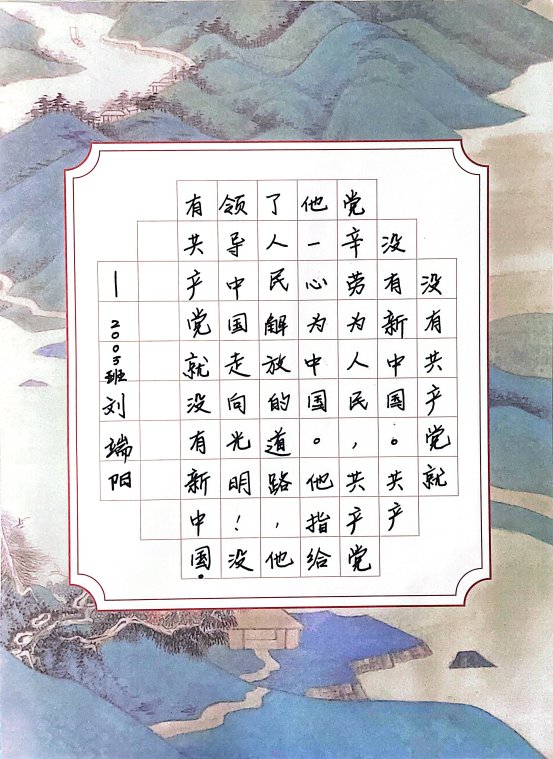 没有共产党就
没有新中国。共产
党辛劳为人民，共产党
他一心为中国。他指给
了人民解放的道路，他
领导中国走向光明！没
有共产党就没有新中国.
—2003班刘端阳